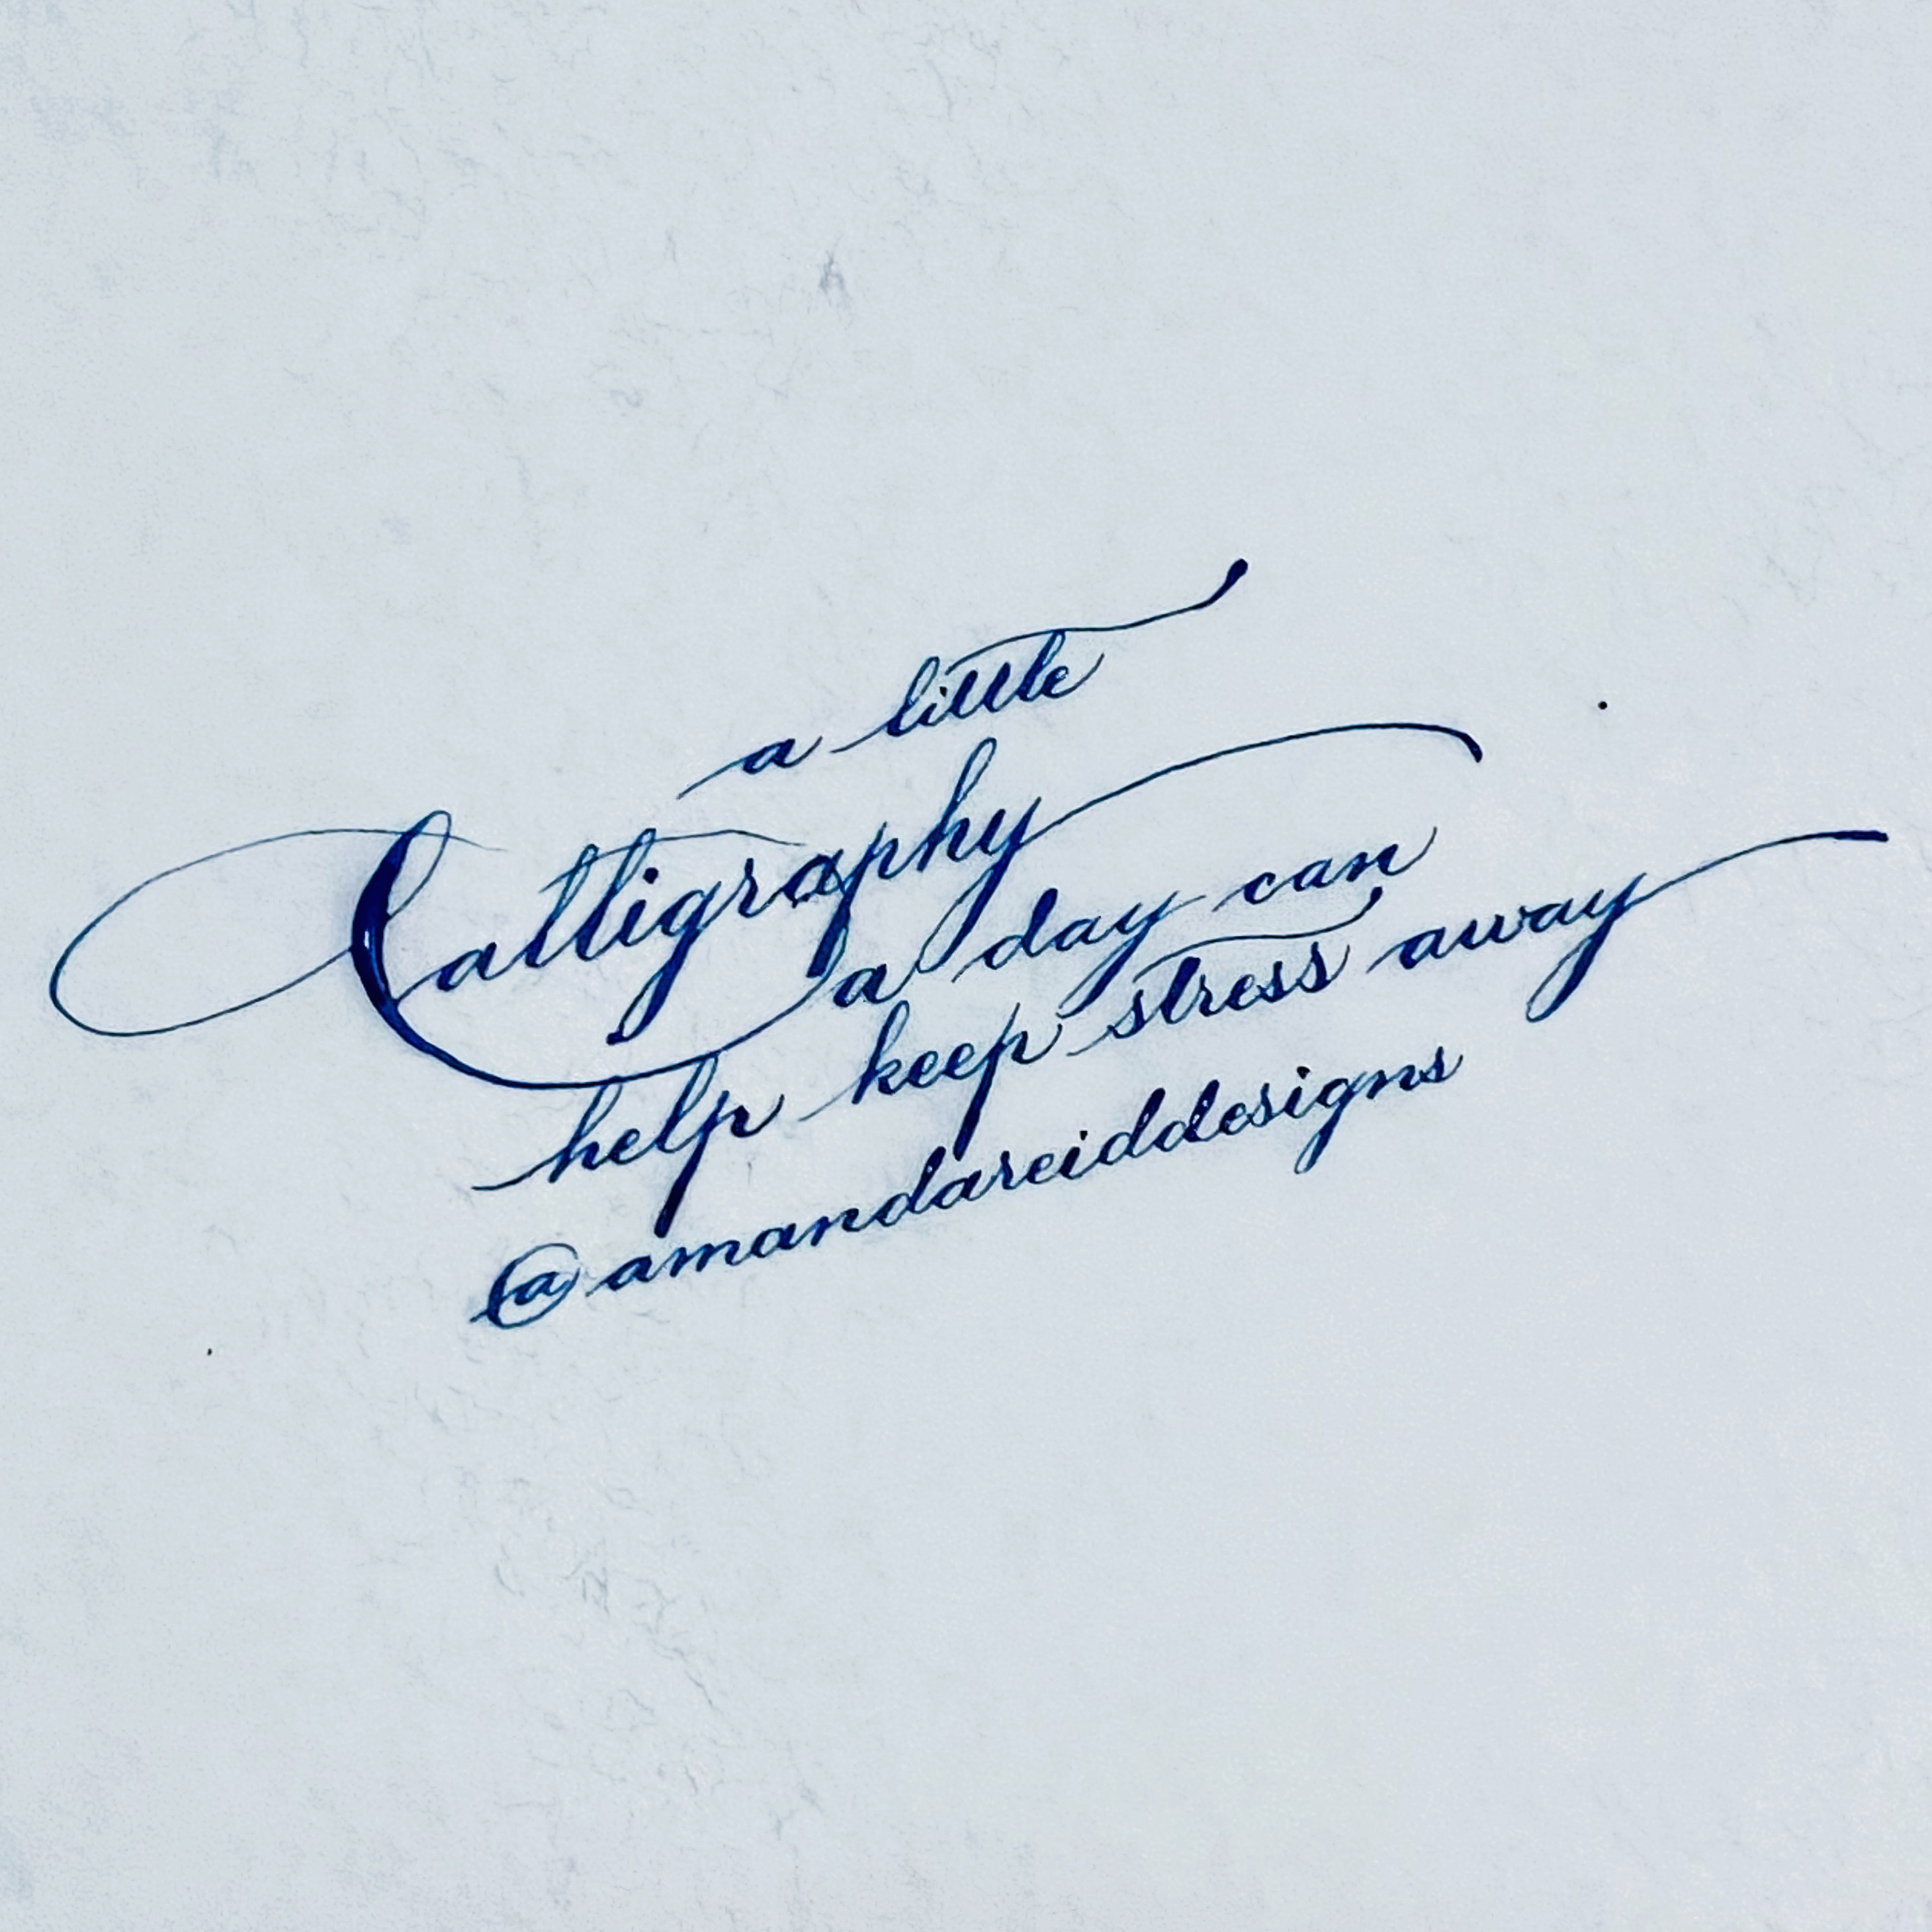 a little
Calligraphy
a day can
help keep stress away
@amandareiddesigns